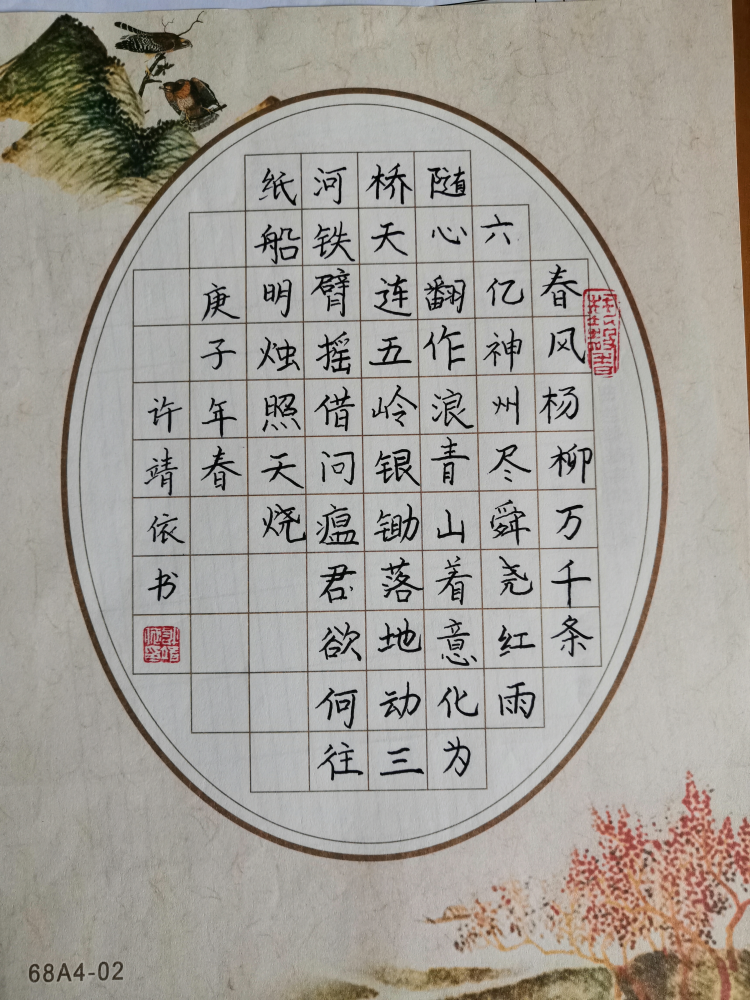 春风杨柳万千条
六亿神州尽舜尧红雨
随心翻作浪青山着意化为
桥天连五岭银锄落地动三
河铁臂摇借问瘟君欲何往
纸船明烛照天烧
庚子年春
许靖依书
68A4-02